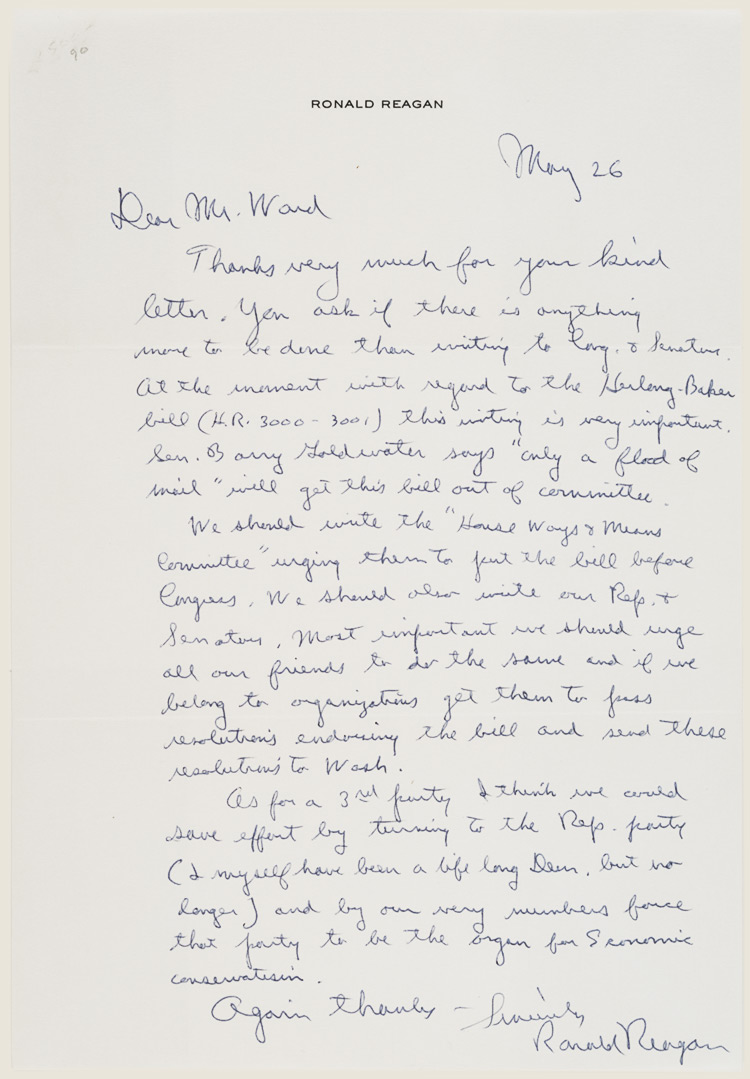 90
RONALD REAGAN
May 26
Dear Mr. Ward
Thanks very much for your kind
letter. You ask if there is anything
more to be done than writing to Cong. & Senators.
At the moment with regard to the Herlong-Baker
bill (H.R. 3000 - 3001) this writing is very important.
Sen. Barry Goldwater says "only a flood of
mail" will get this bill out of committee.
We should write the "House Ways & Means
Committee" urging them to put the bill before
Congress. We should also write our Rep. &
Senators. Most important we should urge
all our friends to do the same and if we
belong to organizations get them to pass
resolutions endorsing the bill and send these
resolutions to Wash.
As for a 3rd party I think we could
save effort by turning to the Rep. party
(I myself have been a life long Dem. but no
longer) and by our very numbers force
that party to be the organ for Economic
conservatism.
Again thanks - Sincerely
Ronald Reagan